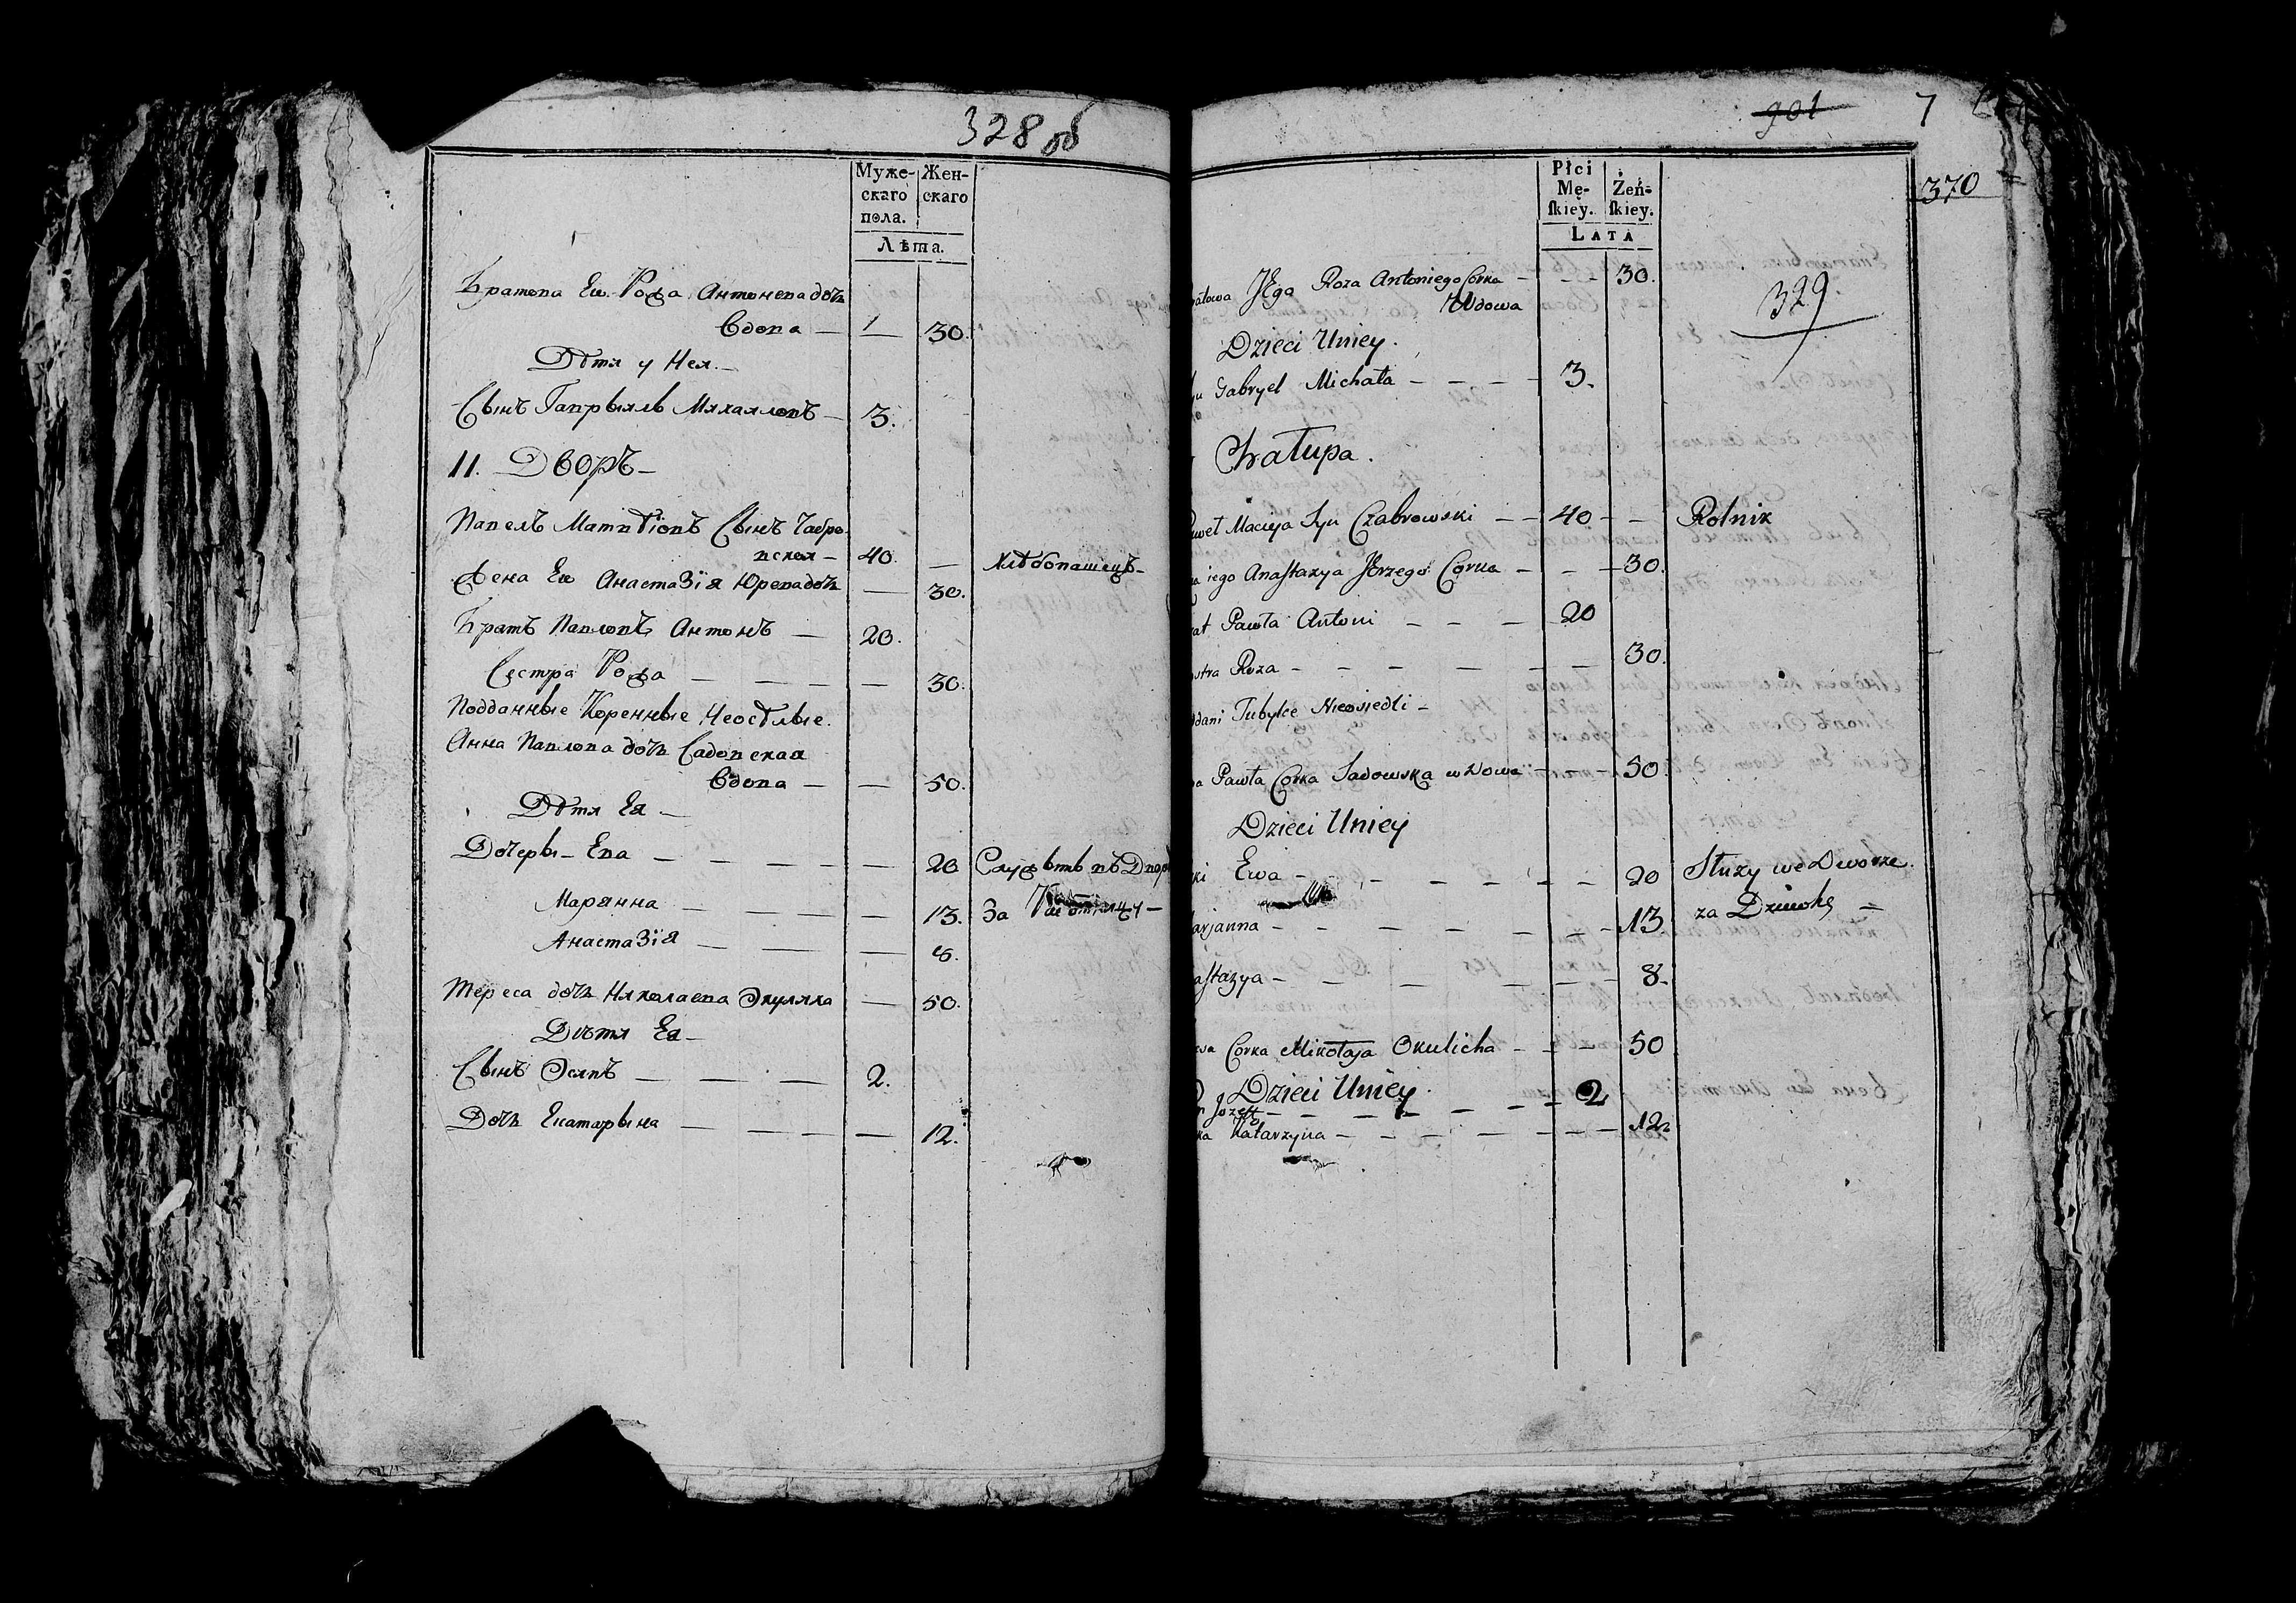 328 об
Муже-
скаго
пола.
Жен-
скаго
Лѣта.
Братова Ею Рожа Антонева дочь
Вдова — — 30.
Дѣти у Нея. —
Сынъ Гапрыяль Михаиловъ — 3.
11. Дворъ —
Павелъ Матвѣіовъ Сынъ Чабро
вскій — 40. — Хлѣбопашецъ —
Жена Ею Анастазія Юрева дочь — 30.
Братъ Павловъ Антонъ — 20.
Сестра Рожа — — — — 30.
Подданные Коренные Неосѣлые.
Анна Павлова дочь Садовская
Вдова — — 50.
Дѣти Ея —
Дочеры — Ева — — — — — 20 Служытъ въ Двор
Марянна — — — — 13. За
Анастазія — — — 8.
Тереса дочь Николаева — 50.
Дѣти Ея —
Сынъ Осипъ — — — 2.
Дочь Екатарына — — — — 12.
901 7
370
Płci
Mę-
skiey.
Żeń-
skiey.
LATA
329
atowa Jego Roza Antoniego Corka — — — 30.
Wdowa
Dzieci Uniey.
Gabryel Michała — — — — 3.
Chałupa.
aweł Macieja Syn Czabrowski — — 40 — — Rolnik
iego Anastazya Jerzego Corka — — — 30.
at Pawła Antoni — — — 20
ostra Roza — — — — — — 30.
ddani Tubylce Nieosiedli —
a Pawła Corka Sadowska wdowa — — — 50.
Dzieci Uniey
ki Ewa — — — — — — 20 Służy we Dworze.
arjanna — — — — — — 13 za
astazya — — — — — — 8.
Corka Mikołaja Okulicha — — — 50
Dzieci Uniey.
n Jozeff — — — — — — 2
ka Katarzyna — — — — — — 12.